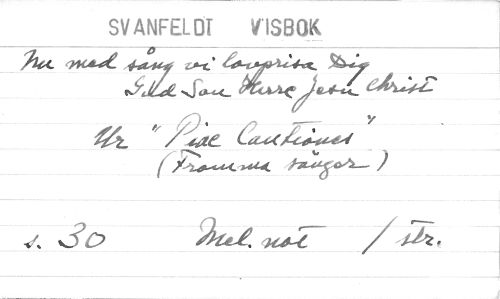 SVANFELDT VISBOK
Nu med sång vi lovprisa Dig
Gud Son Herre Jesu Christ
Ur "Piae Cantiones"
(Fromma sånger)
s. 30 Mel. not / str.